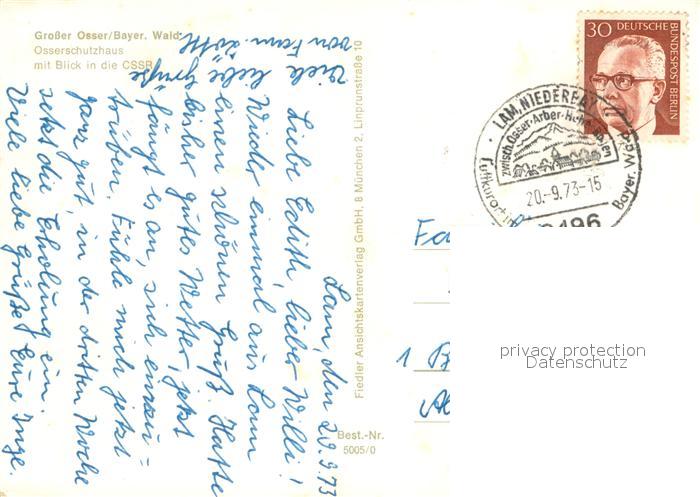 Großer Osser/Bayer. Wald
Osserschutzhaus
mit Blick in die CSSR
Lam, den 20.9.73
Liebe Edith, lieber Willi!
Wieder einmal aus Lam
einen schönen Gruß. Hatte
bisher gutes Wetter, jetzt
fängt es an, sich einzu-
trüben. Fühle mich jetzt
ganz gut, in der dritten Woche
setzt die Erholung ein.
Viele liebe Grüße Eure Inge.
Viele liebe Grüße
von Fam.
Fiedler Ansichtskartenverlag GmbH, 8 München 2, Linprunstraße 10
Best.-Nr.
5005/0
30 DEUTSCHE BUNDESPOST BERLIN
LAM, NIEDERBAY
zwisch. Osser-Arber-
20.-9.73-15
Luftkurort
Bayer. Wald
8496
Fa
1 B
privacy protection
Datenschutz